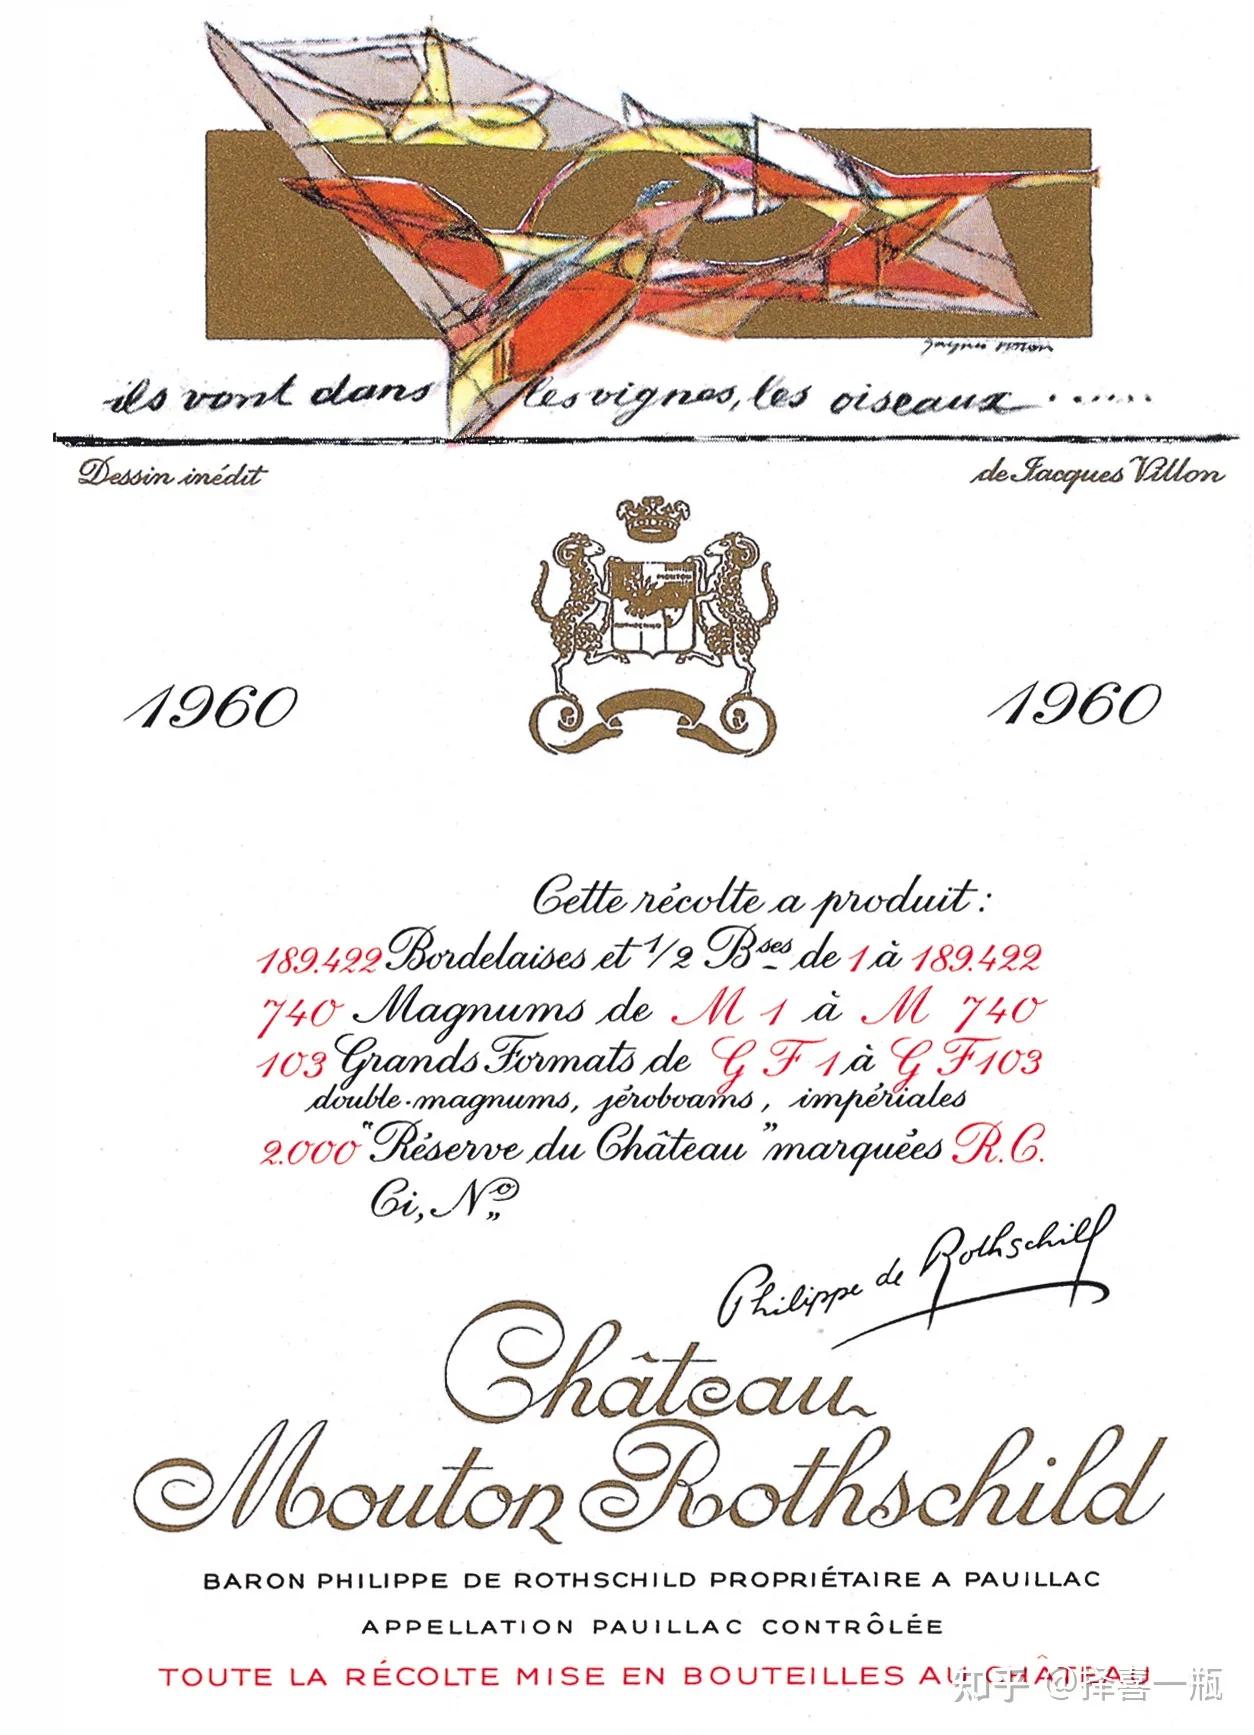 Jacques Villon
ils vont dans les vignes, les oiseaux......
Dessin inédit de Jacques Villon
MOUTON
ROTHSCHILD
1960 1960
Cette récolte a produit :
189.422 Bordelaises et 1/2 Bses de 1 à 189.422
740 Magnums de M 1 à M 740
103 Grands Formats de G F 1 à G F 103
double-magnums, jéroboams, impériales
2.000 "Réserve du Château" marquées R.C.
Ci, No
Philippe de Rothschild
Château
Mouton Rothschild
BARON PHILIPPE DE ROTHSCHILD PROPRIÉTAIRE A PAUILLAC
APPELLATION PAUILLAC CONTRÔLÉE
TOUTE LA RÉCOLTE MISE EN BOUTEILLES AU CHÂTEAU
知乎 @择喜一瓶